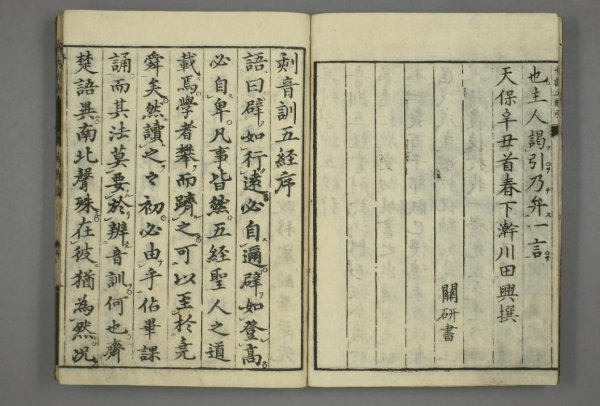 也主人謁引乃弁一言
天保辛丑首春下澣川田興撰
關研書
刻音訓五經序
語曰辟如行遠必自邇辟如登高
必自卑凡事皆然五經聖人之道
載焉學者攀而躋之可以至於堯
舜矣然讀之之初必由乎佔畢課
誦而其法莫要於辨音訓何也齊
楚語異南北聲殊在彼猶為然況